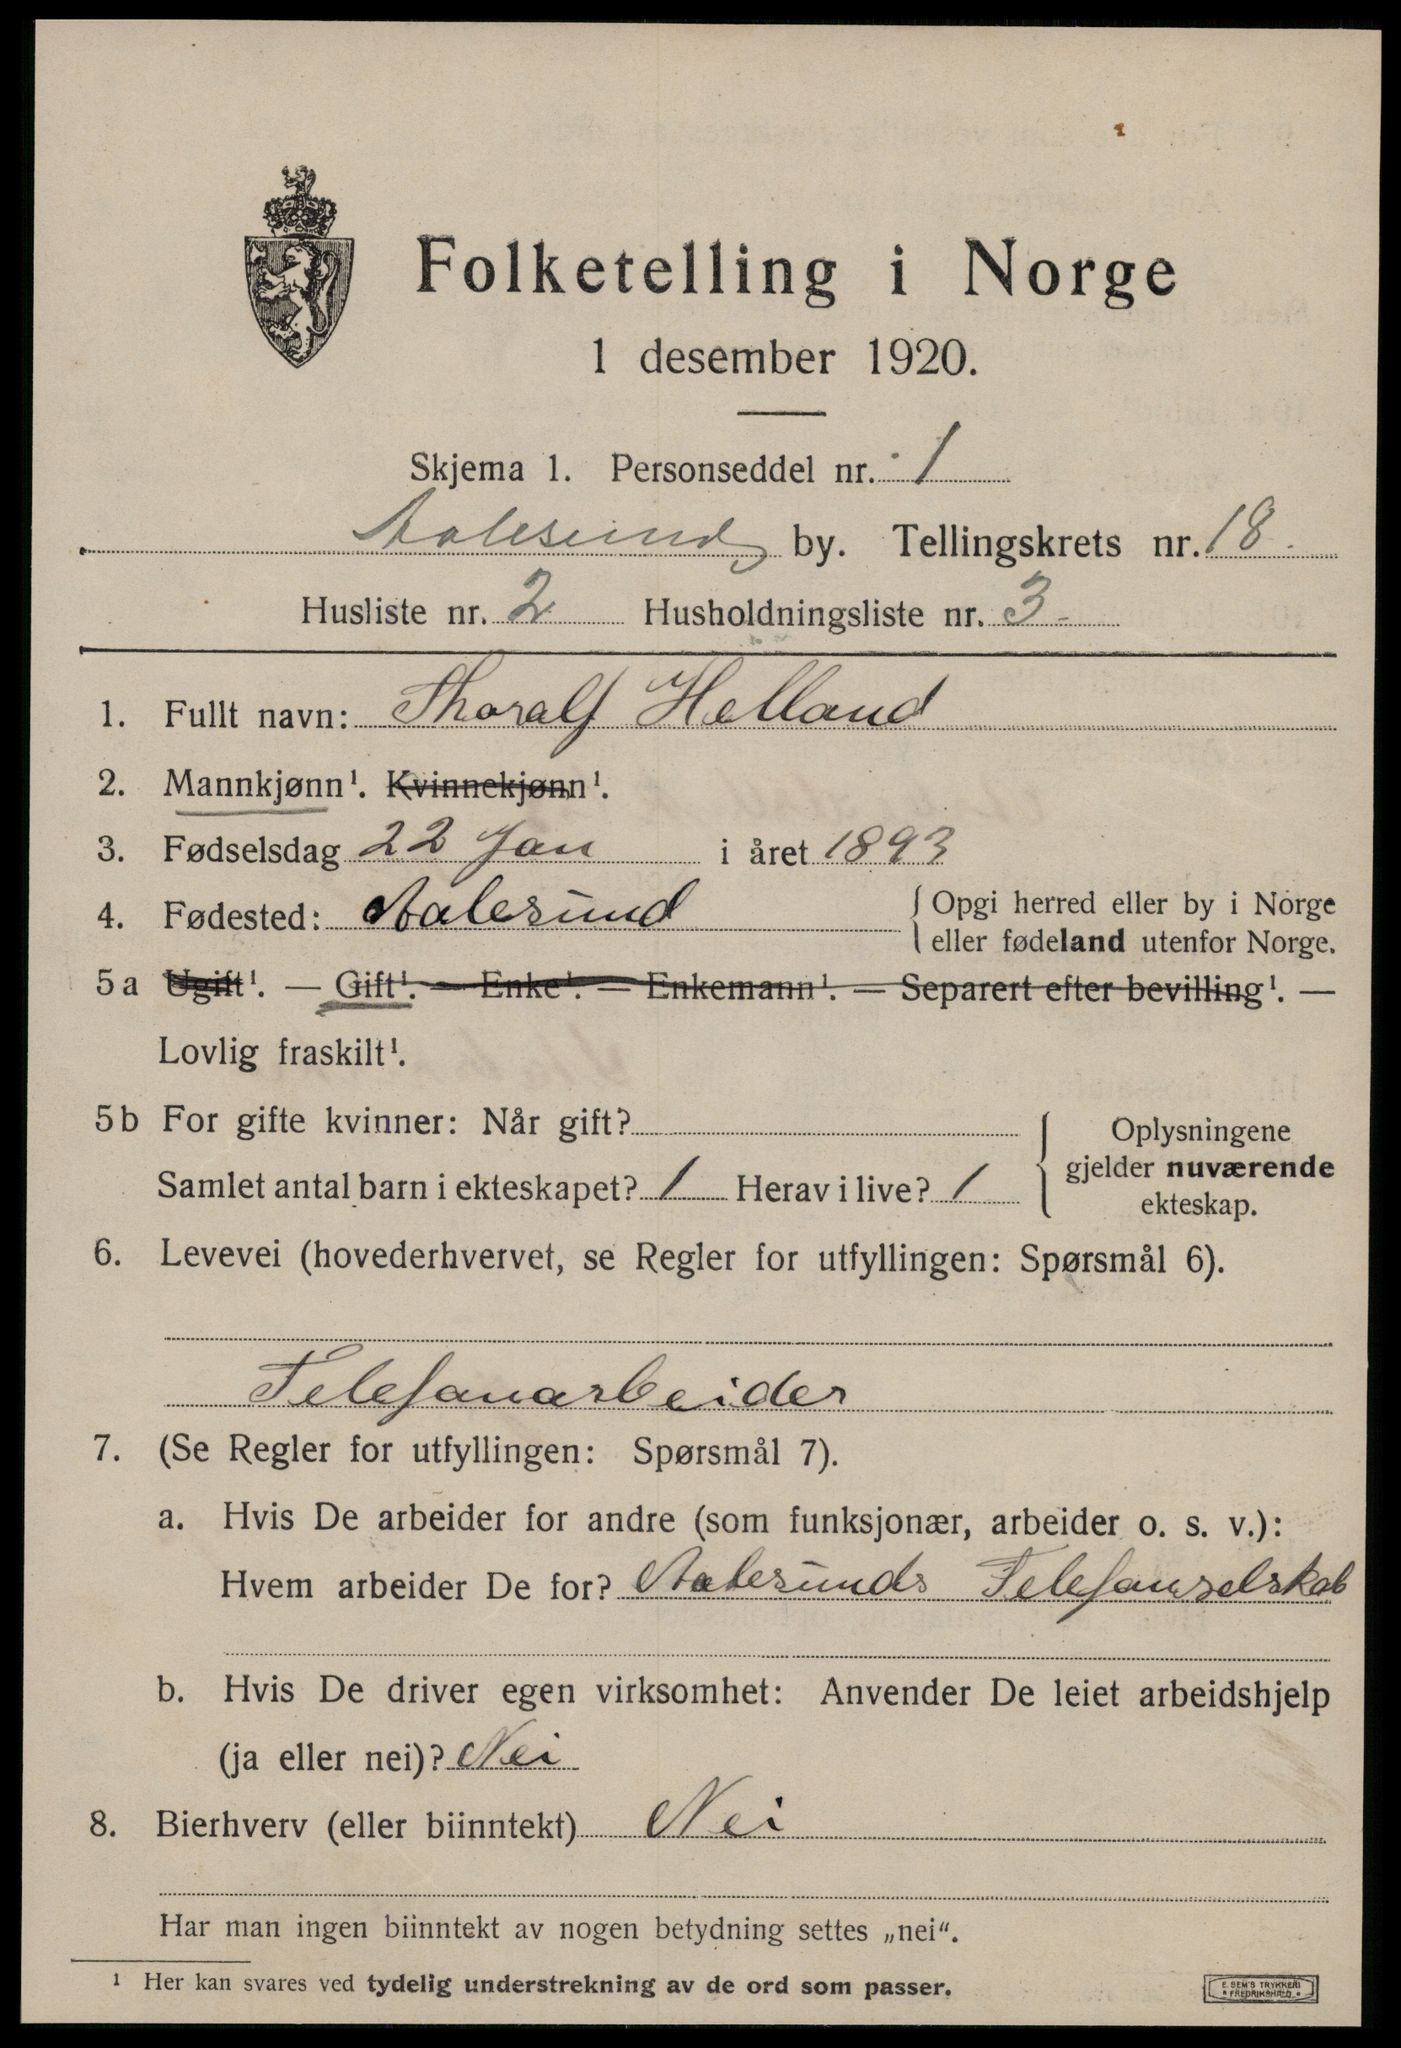 Folketelling i Norge
1 desember 1920.
Skjema 1. Personseddel nr. 1
Aalesund by. Tellingskrets nr. 18.
Husliste nr. 2 Husholdningsliste nr. 3.
1. Fullt navn: Thoralf Helland
2. Mannkjønn¹. Kvinnekjønn¹.
3. Fødselsdag 22 Jan i året 1893
4. Fødested: Aalesund { Opgi herred eller by i Norge
eller fødeland utenfor Norge.
5a Ugift¹. — Gift¹. — Enke¹. — Enkemann¹. — Separert efter bevilling¹. —
Lovlig fraskilt¹.
5b For gifte kvinner: Når gift?
Samlet antal barn i ekteskapet? 1 Herav i live? 1
Oplysningene
gjelder nuværende
ekteskap.
6. Levevei (hovederhvervet, se Regler for utfyllingen: Spørsmål 6).
Telefonarbeider
7. (Se Regler for utfyllingen: Spørsmål 7).
a. Hvis De arbeider for andre (som funksjonær, arbeider o. s. v.):
Hvem arbeider De for? Aalesunds Telefonselskab
b. Hvis De driver egen virksomhet: Anvender De leiet arbeidshjelp
(ja eller nei)? Nei
8. Bierhverv (eller biinntekt) Nei
Har man ingen biinntekt av nogen betydning settes „nei“.
¹ Her kan svares ved tydelig understrekning av de ord som passer.
E. SEM'S TRYKKERI
FREDRIKSHALD